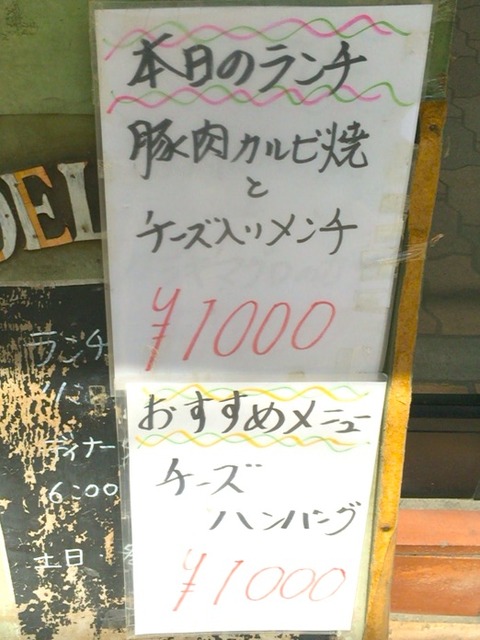 本日のランチ
豚肉カルビ焼
と
チーズ入りメンチ
¥1000
おすすめメニュー
チーズ
ハンバーグ
¥1000
DEL
ランチ
ディナー
6:00
土日